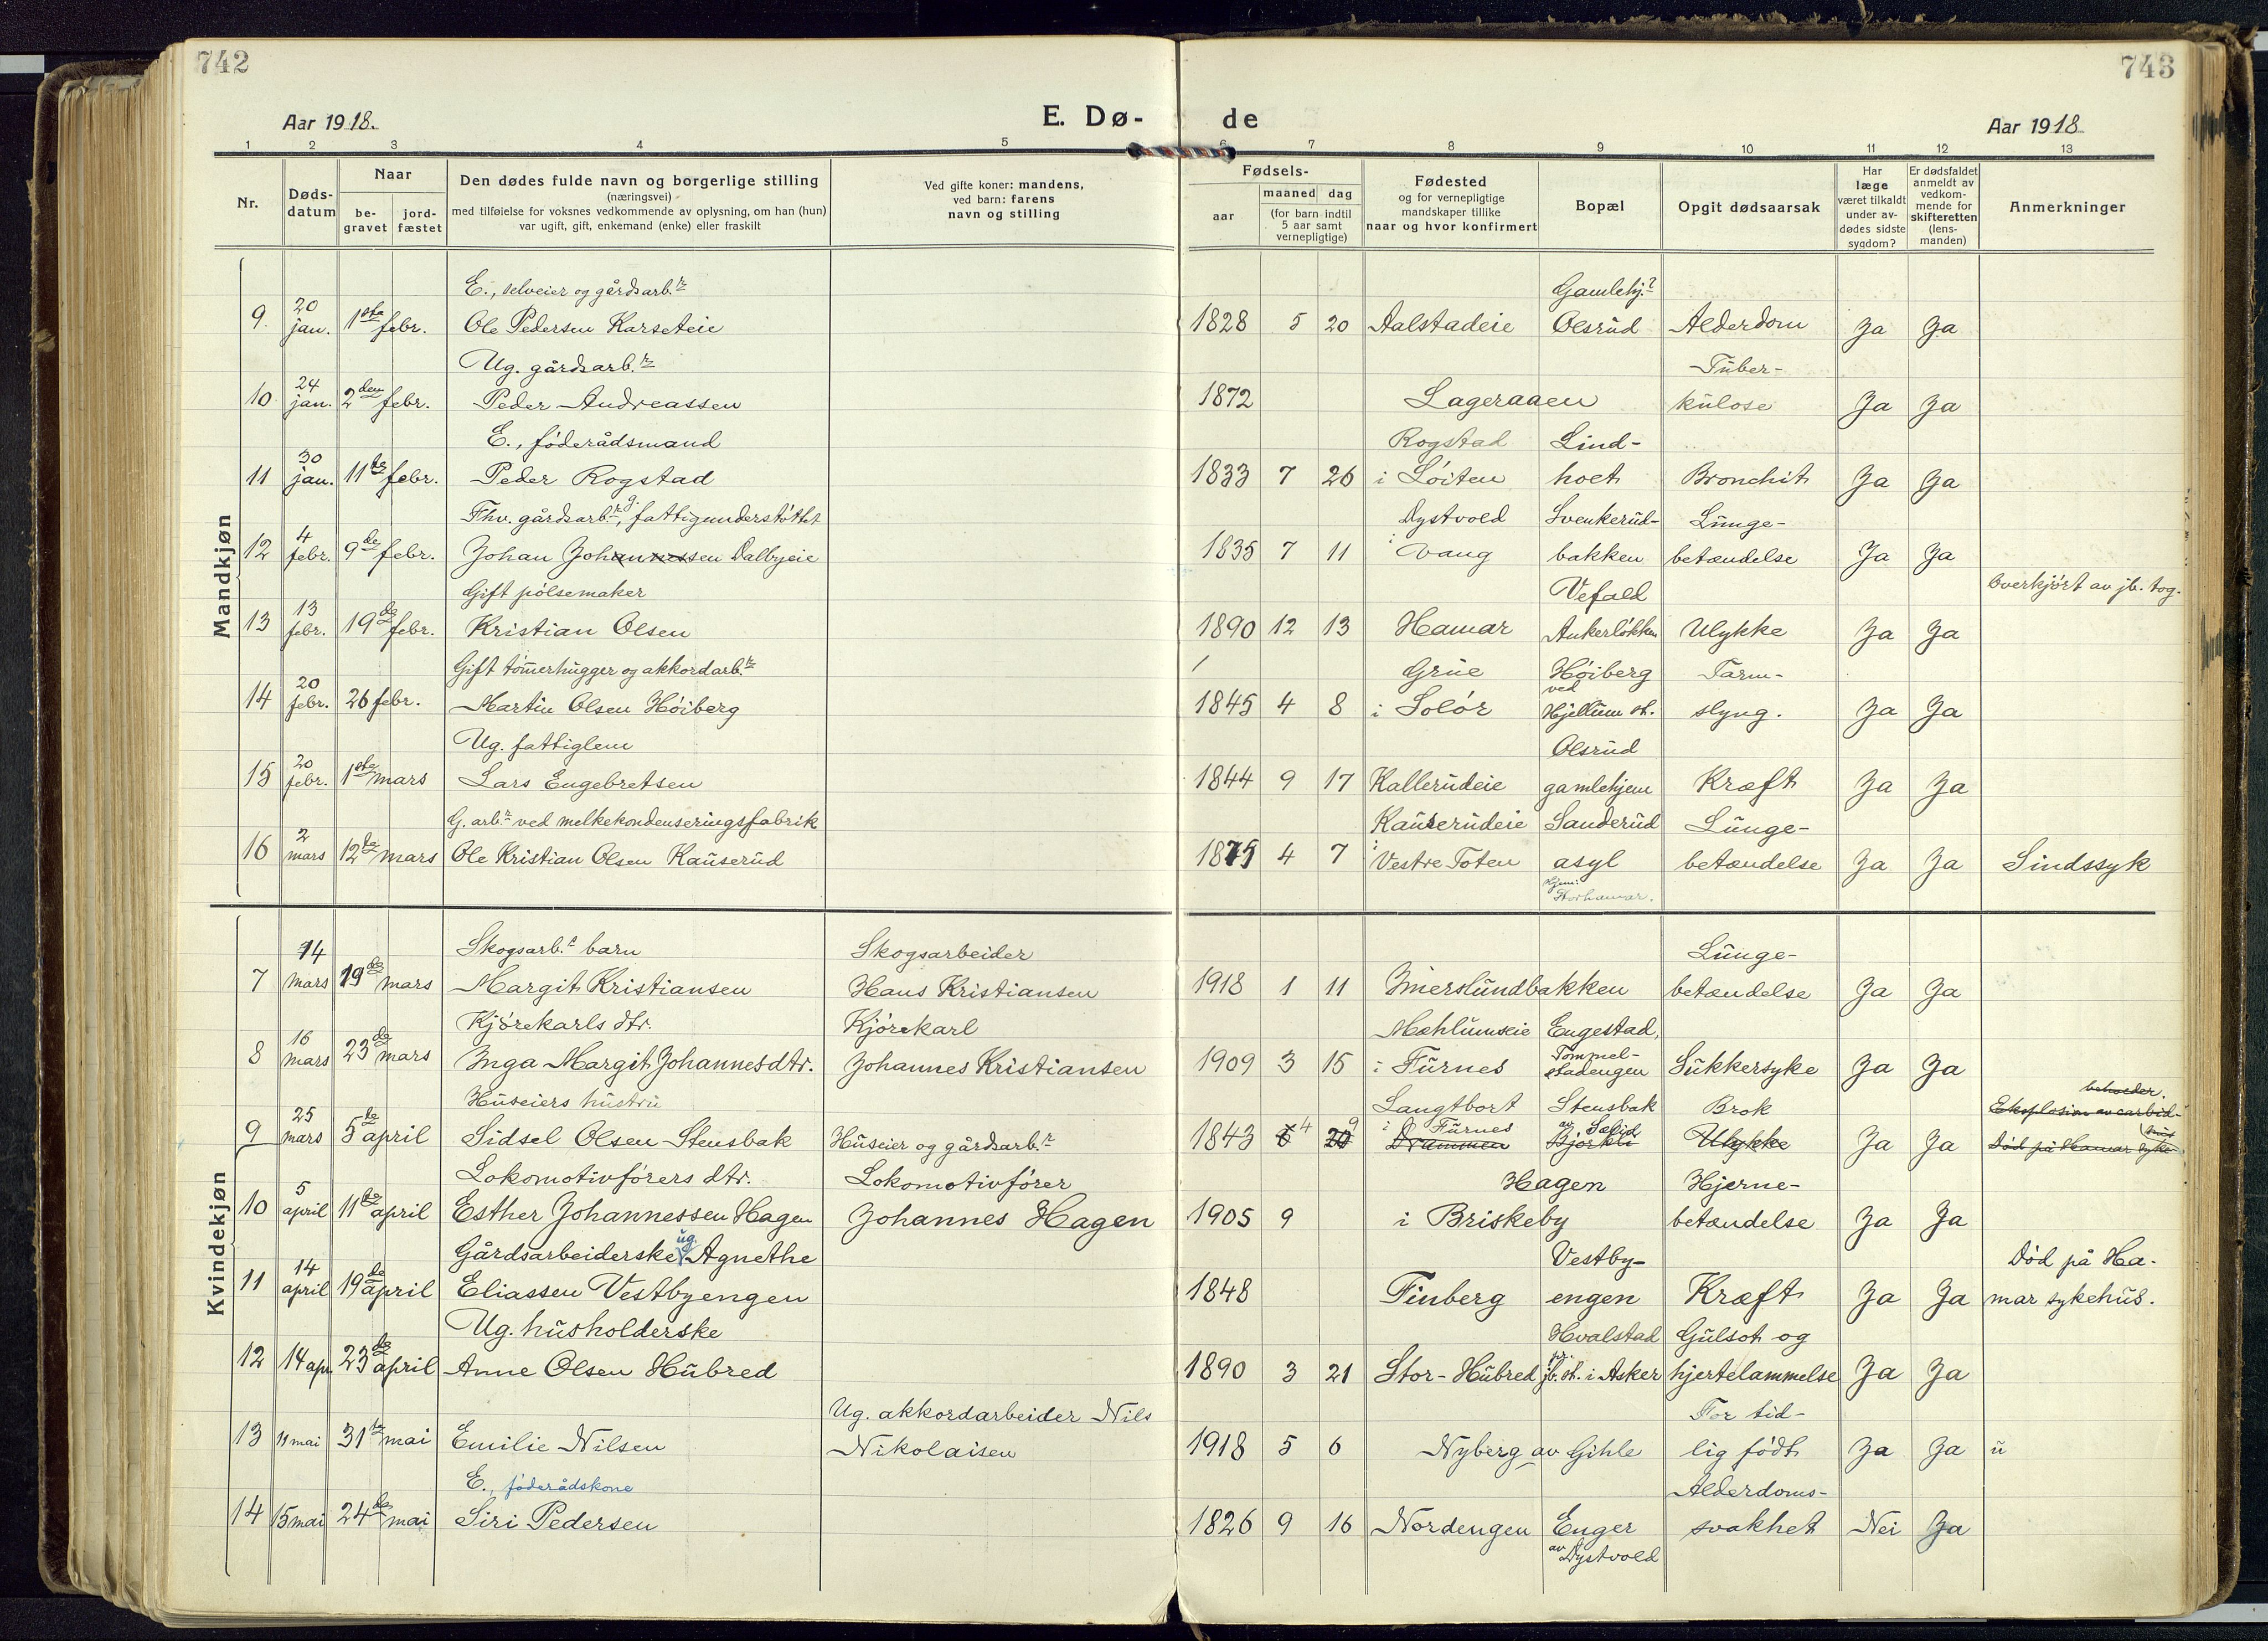 742
743
Aar 1918.
E. Dø-
de
Aar 1918
1 2 3 4 5 6 7 8 9 10 11 12 13
Nr.
Døds-
datum
Naar
be-
gravet
jord-
fæstet
Den dødes fulde navn og borgerlige stilling
(næringsvei)
med tilføielse for voksnes vedkommende av oplysning, om han (hun)
var ugift, gift, enkemand (enke) eller fraskilt
Ved gifte koner: mandens,
ved barn: farens
navn og stilling
Fødsels-
aar
maaned dag
(for barn indtil
5 aar samt
vernepligtige)
Fødested
og for vernepligtige
mandskaper tillike
naar og hvor konfirmert
Bopæl
Opgit dødsaarsak
Har
læge
været tilkaldt
under av-
dødes sidste
sygdom?
Er dødsfaldet
anmeldt av
vedkom-
mende for
skifteretten
(lens-
manden)
Anmerkninger
Mandkjøn
E., selveier og gårdsarb.r Gamlehj.?
9. 20 jan. 1ste febr. Ole Pedersen Karseteie 1828 5 20 Aalstadeie Olsrud Alderdom Ja Ja
Ug. gårdsarb.r Tuber-
10 24 jan. 2den febr. Peder Andreassen 1872 Lageraaen kulose Ja Ja
E., föderådsmand Rogstad Lind-
11 30 jan. 11te febr. Peder Rogstad 1833 7 26 i Löiten hoet Bronchit Ja Ja
Fhv. gårdsarb.r, g. fattigunderstöttet Dystvold Svenkerud- Lunge-
12 4 febr. 9de febr. Johan Johannessen Dalbyeie 1835 7 11 i Vang bakken betændelse Ja Ja
Gift pölsemaker Vefald Overkjört av jb. tog.
13 13 febr. 19de febr. Kristian Olsen 1890 12 13 Hamar Ankerlökken Ulykke Ja Ja
Gift tömerhugger og akkordarb.r Grue Höiberg Tarm-
14 20 febr. 26 febr. Martin Olsen Höiberg 1845 4 8 i Solör ved Hjellum st. slyng. Ja Ja
Ug. fattiglem Olsrud
15 20 febr. 1ste mars Lars Engebretsen 1844 9 17 Kallerudeie gamlehjem Kræft Ja Ja
G. arb.r ved melkekondenseringsfabrik Kauserudeie Sanderud Lunge-
16 2 mars 12te mars Ole Kristian Olsen Kauserud 1875 4 7 i Vestre Toten asyl betændelse Ja Ja Sindssyk
Hjem: Storhamar.
Kvindekjøn
Skogsarb.s barn Skogsarbeider Lunge-
7 14 mars 19de mars Margit Kristiansen Hans Kristiansen 1918 1 11 Imerslundbakken betændelse Ja Ja
Kjörekarls dtr. Kjörekarl Mæhlumseie Engestad,
8 16 mars 23de mars Inga Margit Johannesdtr. Johannes Kristiansen 1909 3 15 i Furnes Tommel-stadengen Sukkersyke Ja Ja
Huseiers hustru Langtbort Stensbak Brok Eksplosion av carbid-beholder.
9 25 mars 5te april Sidsel Olsen Stensbak Huseier og gårdsarb.r 1843 6 4 20 9 i Furnes Drammen av Sælid Bjorkli Ulykke Ja Ja Död på Hamar sykehus
Lokomotivförers dtr. Lokomotivförer Hagen Hjerne-
10 5 april 11te april Esther Johannessen Hagen Johannes Hagen 1905 9 i Briskeby betændelse Ja Ja
Gårdsarbeiderske ug. Agnethe Vestby- Död på Ha-
11 14 april 19de april Eliassen Vestbyengen 1848 Finberg engen Kræft Ja Ja mar sykehus.
Ug. husholderske Hvalstad Gulsot og
12 14 apr. 23de april Anne Olsen Hubred 1890 3 21 Stor-Hubred pr. jb. st. i Asker hjertelammelse Ja Ja
Ug. akkordarbeider Nils For tid-
13 11 mai 31te mai Emilie Nilsen Nikolaisen 1918 5 6 Nyberg av Gihle lig födt Ja Ja u
E., föderådskone Alderdoms-
14 15 mai 24de mai Siri Pedersen 1826 9 16 Nordengen Enger svakhet Nei Ja
av Dystvold